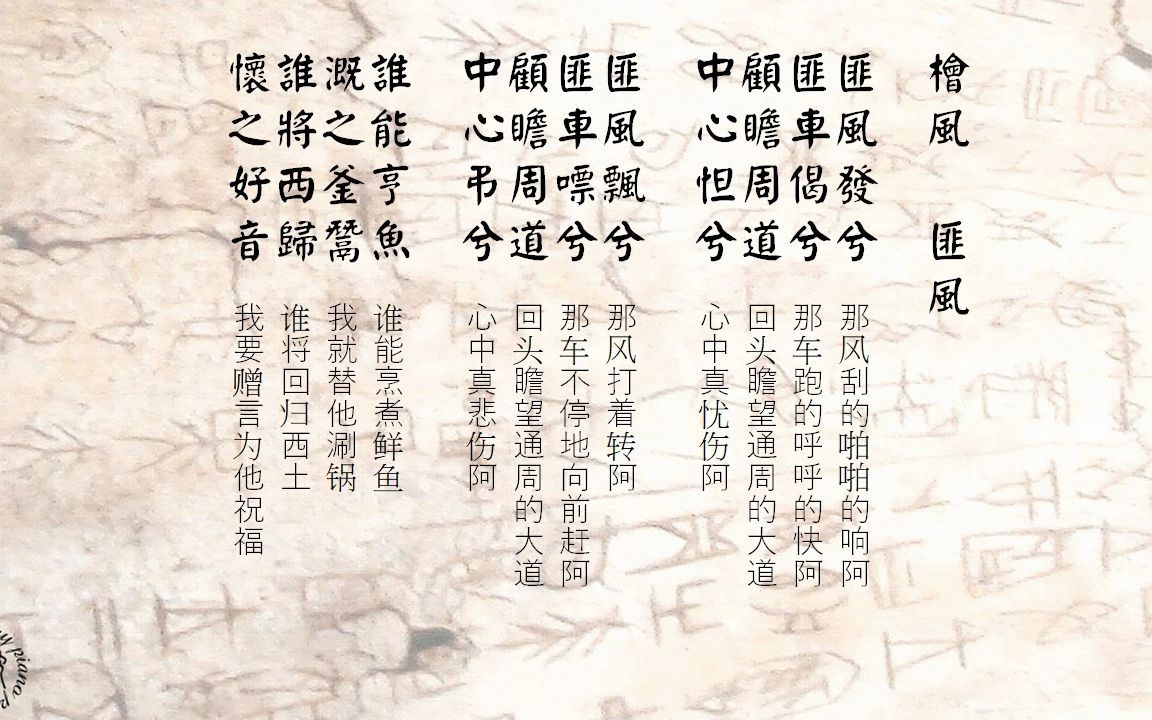 檜風 匪風
匪風發兮
那风刮的啪啪的响阿
匪車偈兮
那车跑的呼呼的快阿
顧瞻周道
回头瞻望通周的大道
中心怛兮
心中真忧伤阿
匪風飄兮
那风打着转阿
匪車嘌兮
那车不停地向前赶阿
顧瞻周道
回头瞻望通周的大道
中心弔兮
心中真悲伤阿
誰能亨魚
谁能烹煮鲜鱼
溉之釜鬵
我就替他涮锅
誰將西歸
谁将回归西土
懷之好音
我要赠言为他祝福
piano